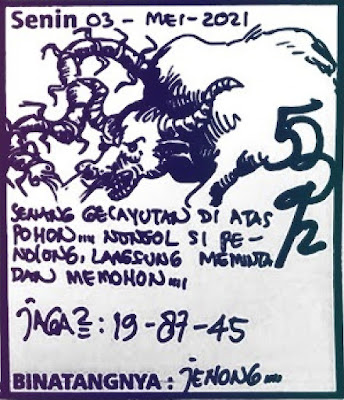 Senin 03 - MEI - 2021
SENANG GECAYUTAN DI ATAS
POHON.... NONGOL SI PE-
NOLONG, LANGSUNG MEMINTA
DAN MEMOHON....
JAGA2 : 19 - 87 - 45
BINATANGNYA : JENONG....